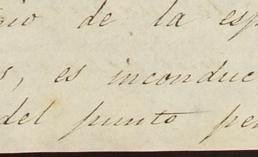 gio de la esp
s, es inconduc
del punto pe